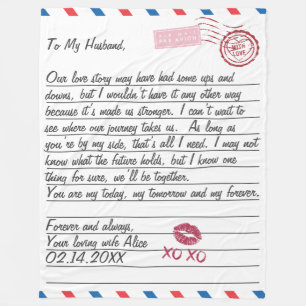 AIR MAIL
PAR AVION
WITH LOVE
To My Husband,
Our love story may have had some ups and
downs, but I wouldn't have it any other way
because it's made us stronger. I can't wait to
see where our journey takes us. As long as
you're by my side, that's all I need. I may not
know what the future holds, but I know one
thing for sure, we'll be together.
You are my today, my tomorrow and my forever.
Forever and always,
Your loving wife Alice
02.14.20XX
XO XO